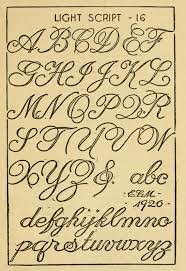 LIGHT SCRIPT - 16
ABCDEF
GHIJKL
MNOPQR
STUVW
XYZ& abc
E.B.M.-
1920-
defghijklmno
pqrstuvwxyz